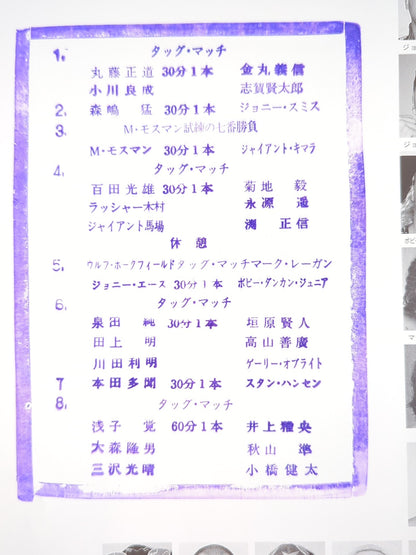 1. タッグ・マッチ
丸藤正道 30分1本 金丸義信
小川良成 志賀賢太郎
2. 森嶋 猛 30分1本 ジョニー・スミス
3. M・モスマン試練の七番勝負
M・モスマン 30分1本 ジャイアント・キマラ
4. タッグ・マッチ
百田光雄 30分1本 菊地 毅
ラッシャー木村 永源 遙
ジャイアント馬場 渕 正信
休憩
5. ウルフ・ホークフィールド タッグ・マッチ マーク・レーガン
ジョニー・エース 30分1本 ボビー・ダンカン・ジュニア
6. タッグ・マッチ
泉田 純 30分1本 垣原賢人
田上 明 高山善廣
川田利明 ゲーリー・オブライト
7 本田多聞 30分1本 スタン・ハンセン
8. タッグ・マッチ
浅子 覚 60分1本 井上雅央
大森隆男 秋山 準
三沢光晴 小橋健太